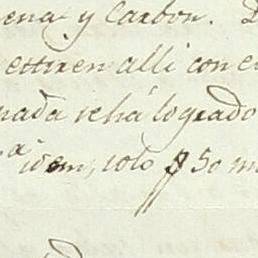 ena y Carbon.
ettiren alli con e
nada se há logrado
idem, solo p 50 m